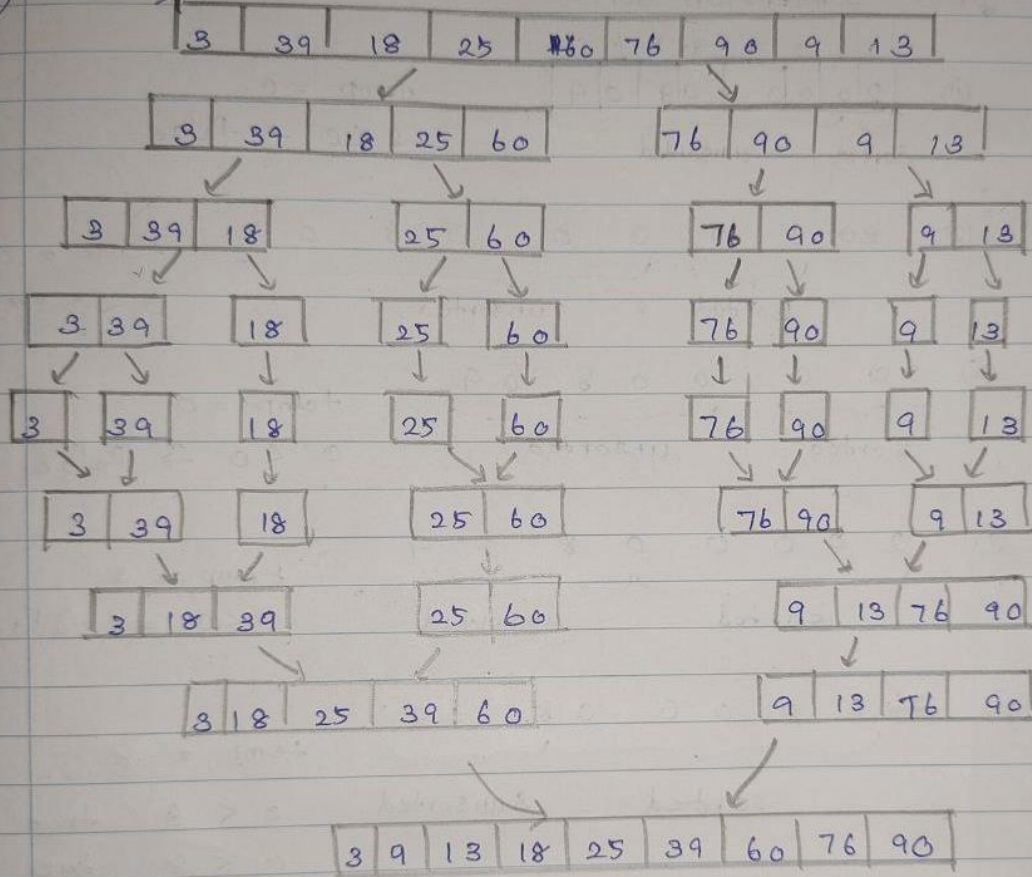 3 39 18 25 60 76 90 9 13
3 39 18 25 60 76 90 9 13
3 39 18 25 60 76 90 9 13
3 39 18 25 60 76 90 9 13
3 39 18 25 60 76 90 9 13
3 39 18 25 60 76 90 9 13
3 18 39 25 60 9 13 76 90
3 18 25 39 60 9 13 76 90
3 9 13 18 25 39 60 76 90